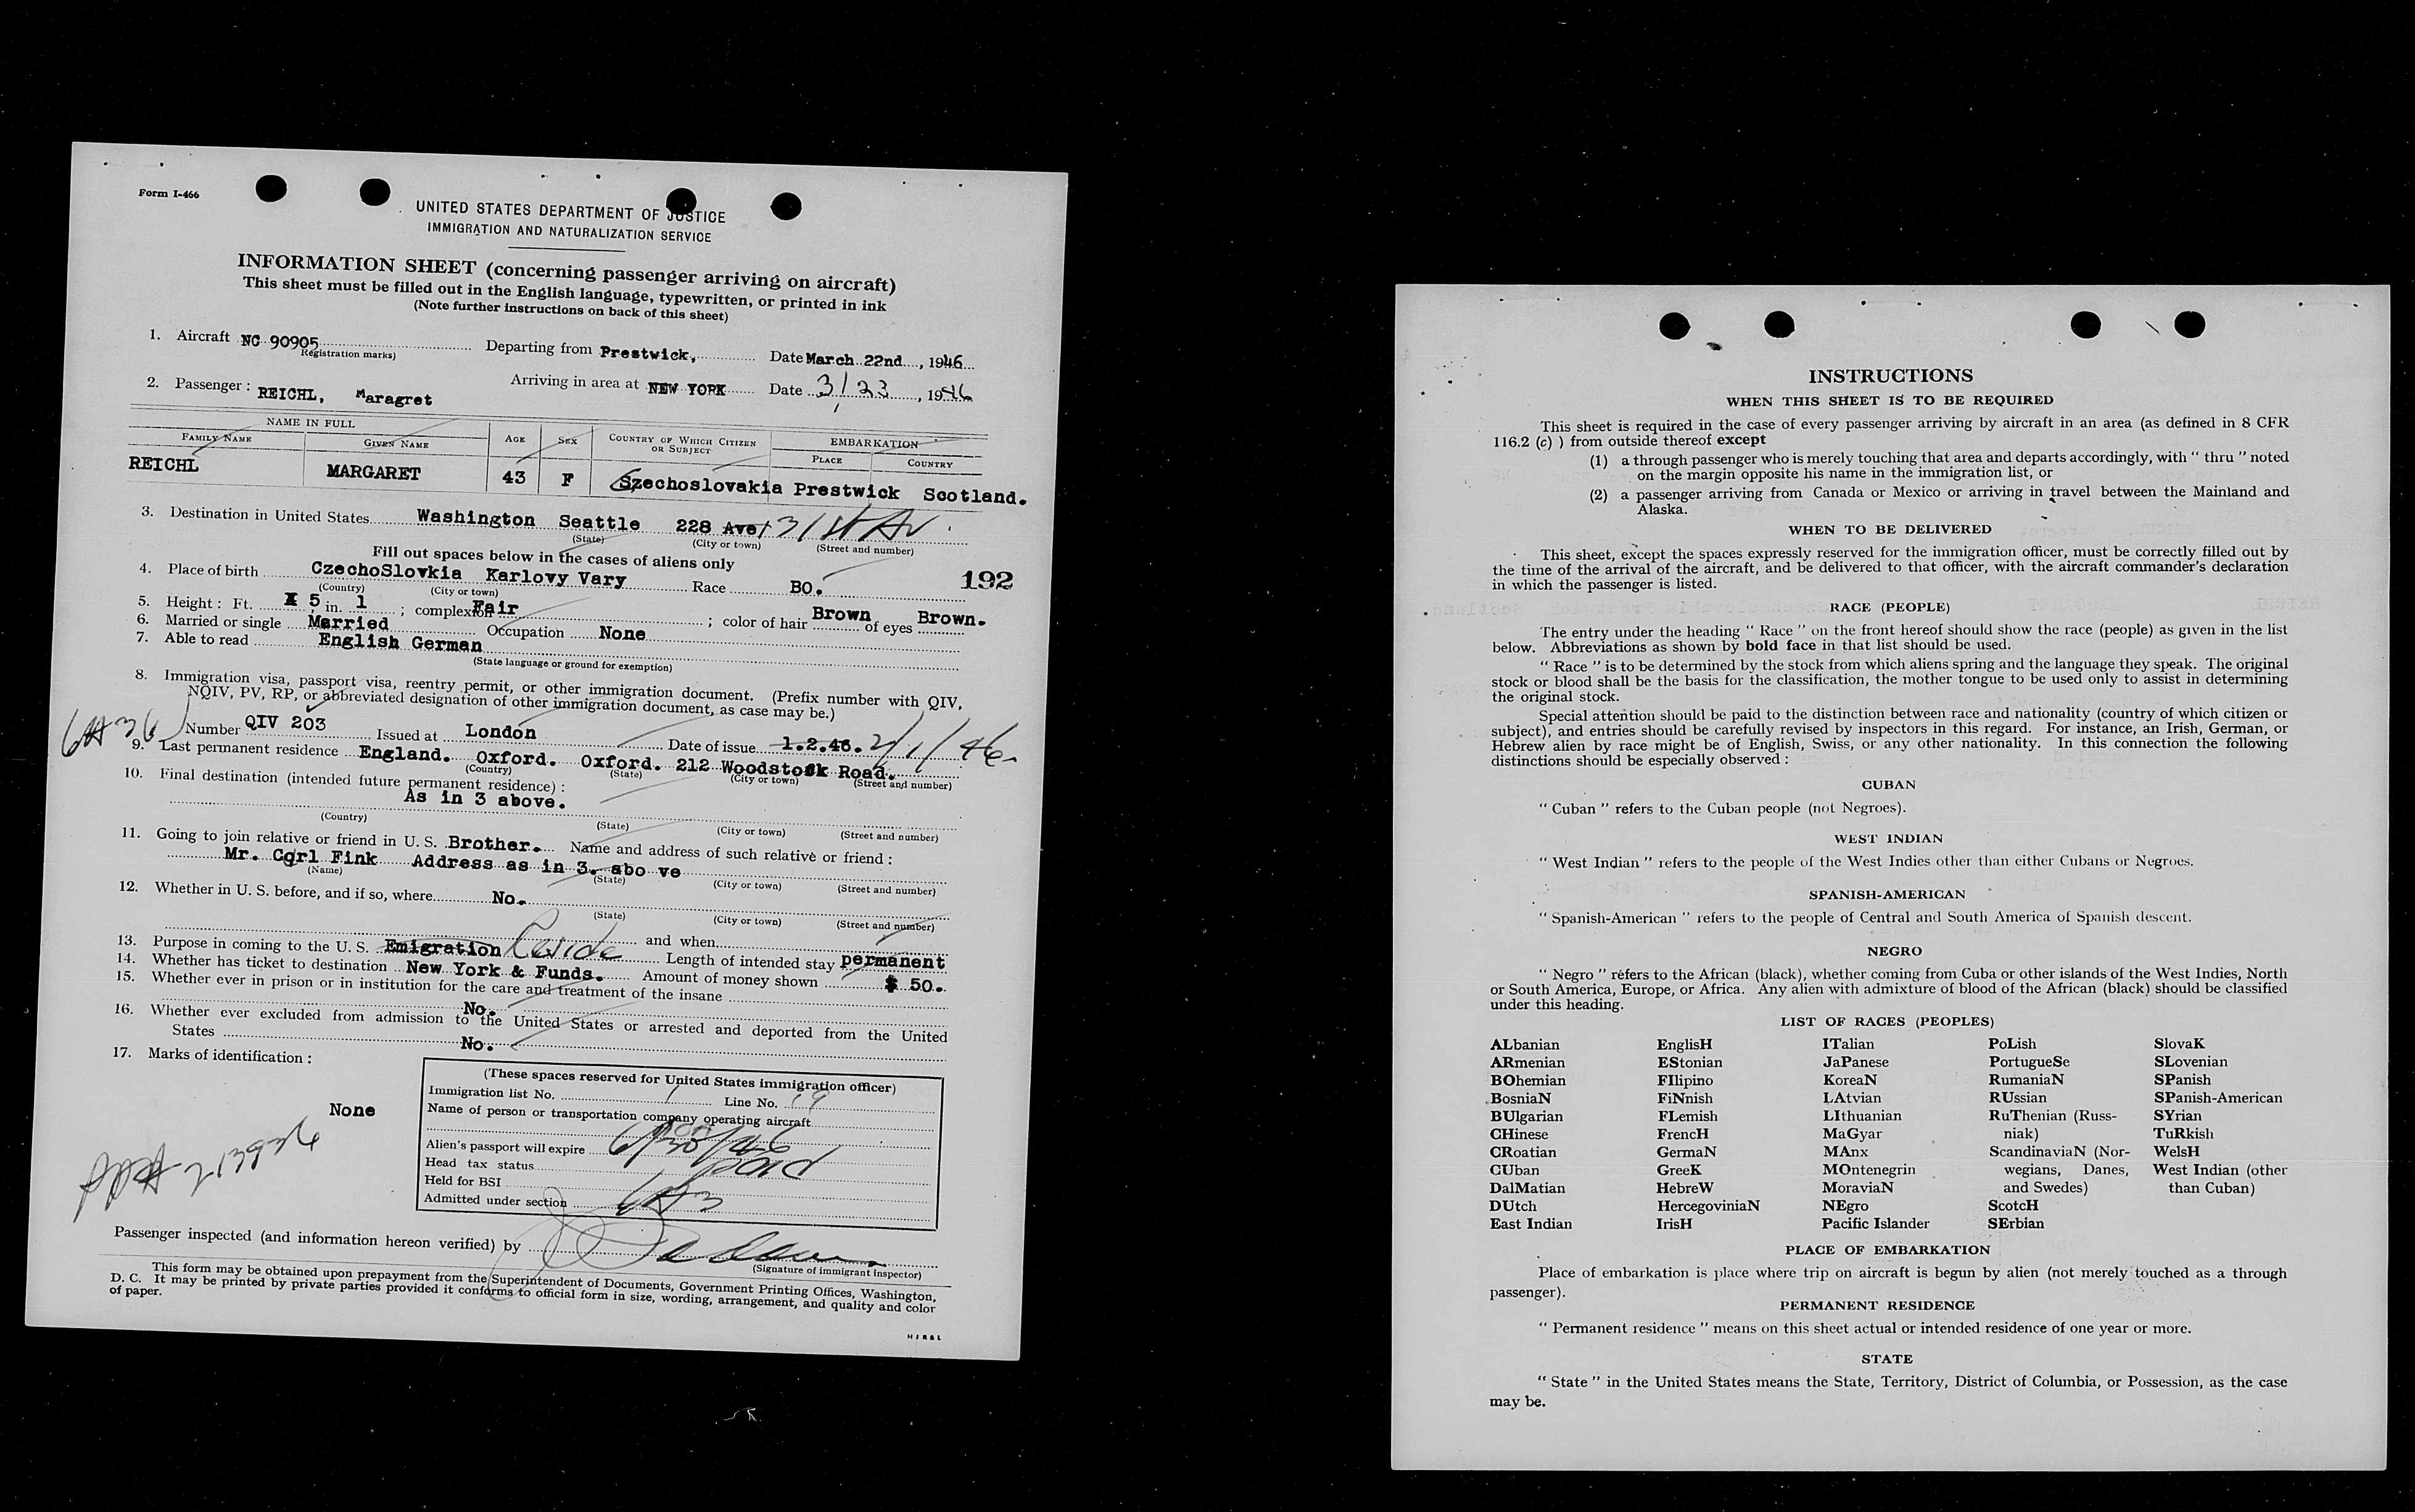 Form I-466
UNITED STATES DEPARTMENT OF JUSTICE
IMMIGRATION AND NATURALIZATION SERVICE
INFORMATION SHEET (concerning passenger arriving on aircraft)
This sheet must be filled out in the English language, typewritten, or printed in ink
(Note further instructions on back of this sheet)
1. Aircraft NC 90905 Departing from Prestwick, Date March 22nd, 1946
Registration marks)
2. Passenger : REICHL, Maragret Arriving in area at NEW YORK Date 3/23, 1946
NAME IN FULL
FAMILY NAME GIVEN NAME AGE SEX COUNTRY OF WHICH CITIZEN OR SUBJECT EMBARKATION
PLACE COUNTRY
REICHL MARGARET 43 F Szechoslovakia Prestwick Scotland.
3. Destination in United States Washington Seattle 228 Ave 31st Av
(State) (City or town) (Street and number)
Fill out spaces below in the cases of aliens only
4. Place of birth CzechoSlovkia Karlovy Vary Race BO. 192
(Country) (City or town)
5. Height : Ft. X 5 in. 1 ; complexion Fair ; color of hair Brown of eyes Brown.
6. Married or single Married Occupation None
7. Able to read English German
(State language or ground for exemption)
8. Immigration visa, passport visa, reentry permit, or other immigration document. (Prefix number with QIV,
NQIV, PV, RP, or abbreviated designation of other immigration document, as case may be.)
Number QIV 203 Issued at London Date of issue 1.2.46. 2/1/46
9. Last permanent residence England. Oxford. Oxford. 212 Woodstock Road.
(Country) (State) (City or town) (Street and number)
10. Final destination (intended future permanent residence) :
As in 3 above.
(Country) (State) (City or town) (Street and number)
11. Going to join relative or friend in U. S. Brother. Name and address of such relative or friend :
Mr. Carl Fink Address as in 3. abo ve
(Name) (State) (City or town) (Street and number)
12. Whether in U. S. before, and if so, where No.
(State) (City or town) (Street and number)
and when
13. Purpose in coming to the U. S. Emigration Reside Length of intended stay permanent
14. Whether has ticket to destination New York & Funds. Amount of money shown $ 50.
15. Whether ever in prison or in institution for the care and treatment of the insane
No.
16. Whether ever excluded from admission to the United States or arrested and deported from the United
States No.
17. Marks of identification :
None
(These spaces reserved for United States immigration officer)
Immigration list No. 1 Line No. 19
Name of person or transportation company operating aircraft
Alien's passport will expire 6/30/46
Head tax status paid
Held for BSI
Admitted under section 6A3
Passenger inspected (and information hereon verified) by
(Signature of immigrant inspector)
This form may be obtained upon prepayment from the Superintendent of Documents, Government Printing Offices, Washington,
D. C. It may be printed by private parties provided it conforms to official form in size, wording, arrangement, and quality and color
of paper.
H J R & L
INSTRUCTIONS
WHEN THIS SHEET IS TO BE REQUIRED
This sheet is required in the case of every passenger arriving by aircraft in an area (as defined in 8 CFR
116.2 (c) ) from outside thereof except
(1) a through passenger who is merely touching that area and departs accordingly, with " thru " noted
on the margin opposite his name in the immigration list, or
(2) a passenger arriving from Canada or Mexico or arriving in travel between the Mainland and
Alaska.
WHEN TO BE DELIVERED
This sheet, except the spaces expressly reserved for the immigration officer, must be correctly filled out by
the time of the arrival of the aircraft, and be delivered to that officer, with the aircraft commander's declaration
in which the passenger is listed.
RACE (PEOPLE)
The entry under the heading " Race " on the front hereof should show the race (people) as given in the list
below. Abbreviations as shown by bold face in that list should be used.
" Race " is to be determined by the stock from which aliens spring and the language they speak. The original
stock or blood shall be the basis for the classification, the mother tongue to be used only to assist in determining
the original stock.
Special attention should be paid to the distinction between race and nationality (country of which citizen or
subject), and entries should be carefully revised by inspectors in this regard. For instance, an Irish, German, or
Hebrew alien by race might be of English, Swiss, or any other nationality. In this connection the following
distinctions should be especially observed :
CUBAN
" Cuban " refers to the Cuban people (not Negroes).
WEST INDIAN
" West Indian " refers to the people of the West Indies other than either Cubans or Negroes.
SPANISH-AMERICAN
" Spanish-American " refers to the people of Central and South America of Spanish descent.
NEGRO
" Negro " refers to the African (black), whether coming from Cuba or other islands of the West Indies, North
or South America, Europe, or Africa. Any alien with admixture of blood of the African (black) should be classified
under this heading.
LIST OF RACES (PEOPLES)
ALbanian EnglisH ITalian PoLish SlovaK
ARmenian EStonian JaPanese PortugueSe SLovenian
BOhemian FIlipino KoreaN RumaniaN SPanish
BosniaN FiNnish LAtvian RUssian SPanish-American
BUlgarian FLemish LIthuanian RuThenian (Russ- SYrian
CHinese FrencH MaGyar niak) TuRkish
CRoatian GermaN MAnx ScandinaviaN (Nor- WelsH
CUban GreeK MOntenegrin wegians, Danes, West Indian (other
DalMatian HebreW MoraviaN and Swedes) than Cuban)
DUtch HercegoviniaN NEgro ScotcH
East Indian IrisH Pacific Islander SErbian
PLACE OF EMBARKATION
Place of embarkation is place where trip on aircraft is begun by alien (not merely touched as a through
passenger).
PERMANENT RESIDENCE
" Permanent residence " means on this sheet actual or intended residence of one year or more.
STATE
" State " in the United States means the State, Territory, District of Columbia, or Possession, as the case
may be.